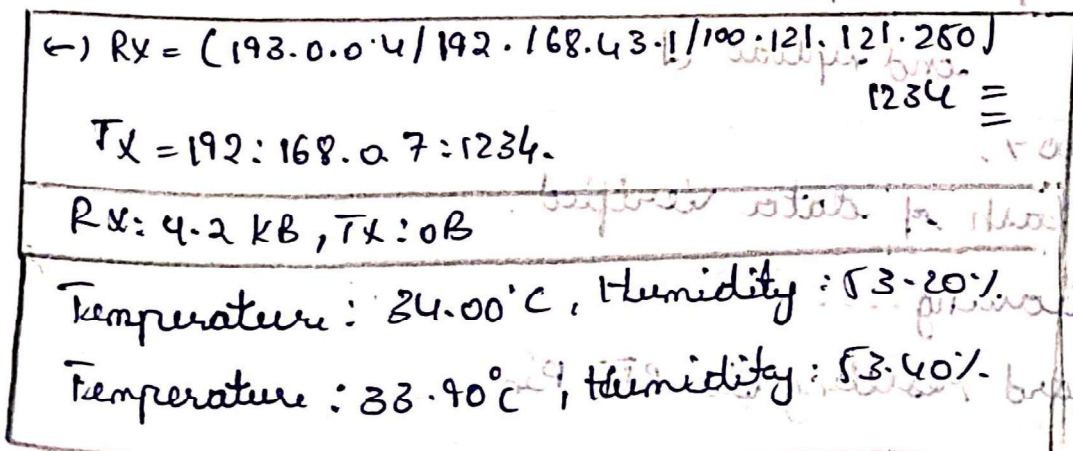 ←) RX = (193.0.0.4/192.168.43.1/100.121.121.250)
1234
TX = 192:168.0.7:1234.
RX: 4.2 KB, TX: 0B
Temperature: 34.00°C, Humidity: 53.20%
Temperature: 33.90°C, Humidity: 53.40%